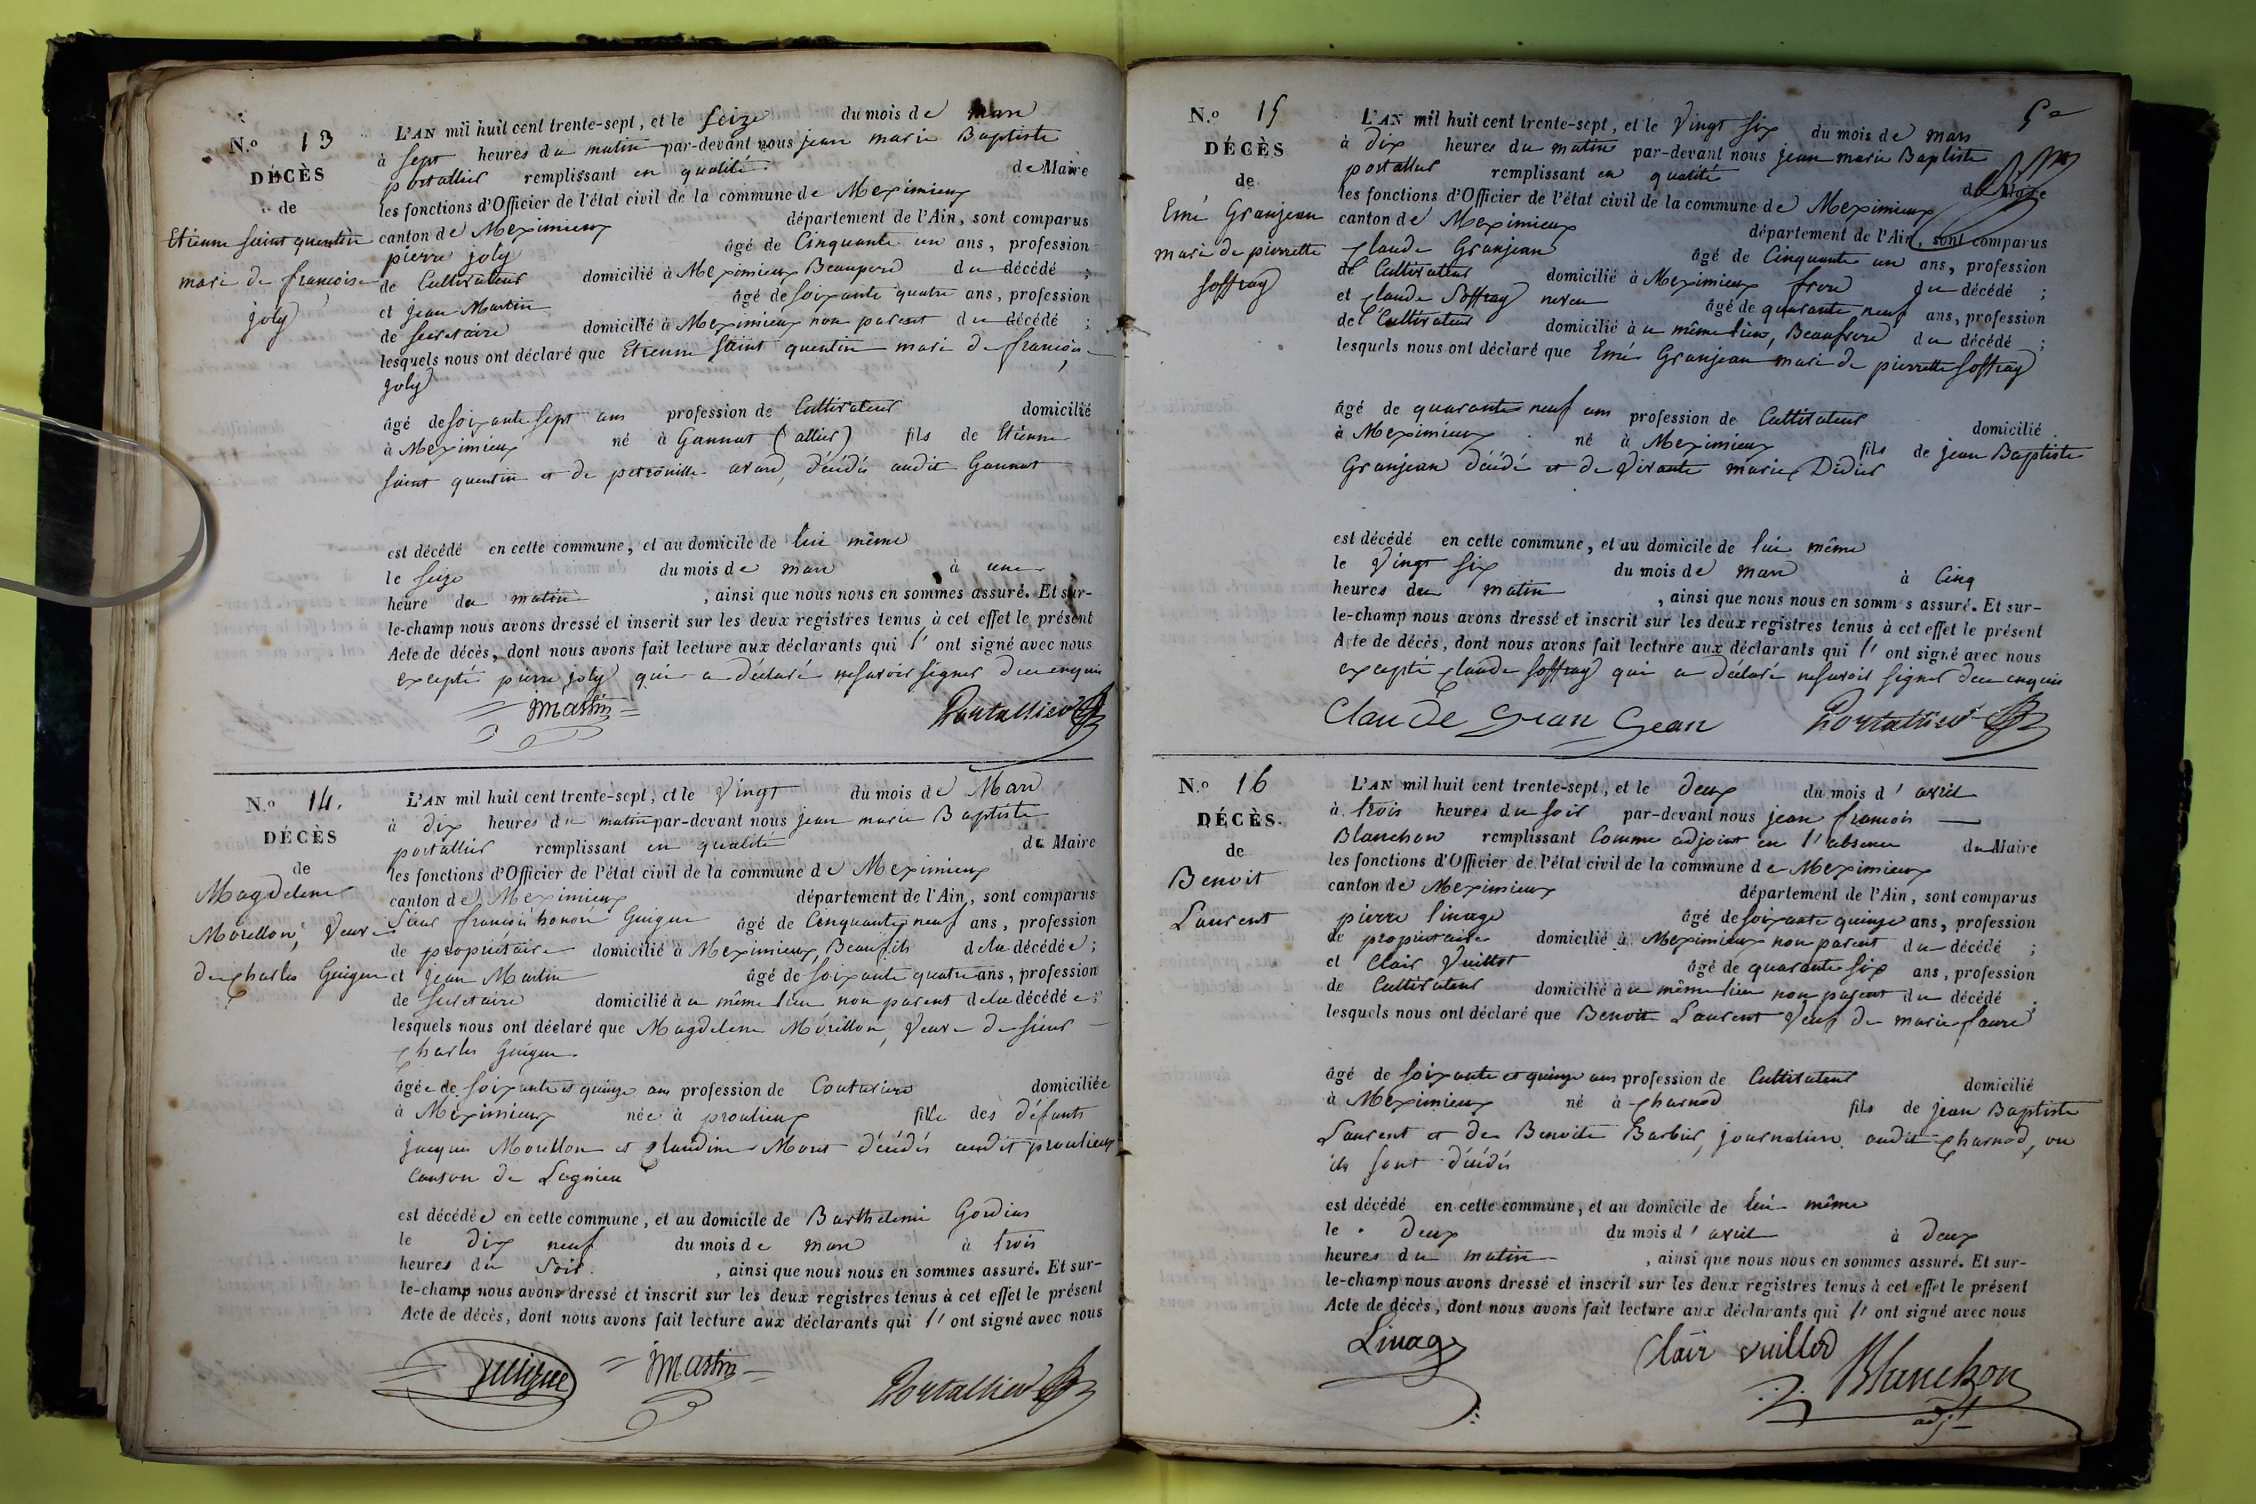 N.o 13
DÉCÈS
de
Etienne Saint quentin
mari de françoise
joly
L'AN mil huit cent trente-sept, et le Seize du mois de mars
à Sept heures du matin par-devant nous jean marie Baptiste
portallier remplissant en qualité de Maire
les fonctions d'Officier de l'état civil de la commune de Meximieux
canton de Meximieux département de l'Ain, sont comparus
pierre joly âgé de Cinquante un ans, profession
de Cultivateur domicilié à Meximieux Beaupere du décédé ;
et jean Martin âgé de soixante quatre ans, profession
de Secretaire domicilié à Meximieux non parent du décédé ;
lesquels nous ont déclaré que Etienne Saint quentin mari de françoise
joly
âgé de soixante sept ans profession de Cultivateur domicilié
à Meximieux né à Gannat (allier) fils de Etienne
Saint quentin et de petronille avard, décédés audit Gannat
est décédé en cette commune, et au domicile de lui même
le Seize du mois de mars à une
heure du matin , ainsi que nous nous en sommes assuré. Et sur-
le-champ nous avons dressé et inscrit sur les deux registres tenus à cet effet le présent
Acte de décès, dont nous avons fait lecture aux déclarants qui l' ont signé avec nous
excepté pierre joly qui a déclaré ne savoir signer de ce enquis
JMartin
Portallier
N.o 14.
DÉCÈS
de
Magdeleine
Morellon, Veuve
de Charles Guigue
L'AN mil huit cent trente-sept, et le Vingt du mois de Mars
à dix heures du matin par-devant nous jean marie Baptiste
portallier remplissant en qualité de Maire
les fonctions d'Officier de l'état civil de la commune de Meximieux
canton de Meximieux département de l'Ain, sont comparus
Sieur françois honoré Guigue âgé de Cinquante neuf ans, profession
de propriétaire domicilié à Meximieux, Beaufils de la décédée ;
et Jean Martin âgé de soixante quatre ans, profession
de Secretaire domicilié à ce même lieu non parent de la décédée ;
lesquels nous ont déclaré que Magdeleine Morellon, Veuve de sieur
Charles Guigue
âgée de soixante et quinze ans profession de Couturiere domiciliée
à Meximieux née à proulieux fille des défunts
jacques Morellon et Claudine Moret décédés audit proulieux
Canton de Lagnieu
est décédée en cette commune, et au domicile de Barthelemi Gordias
le dix neuf du mois de mars à trois
heures du Soir. , ainsi que nous nous en sommes assuré. Et sur-
le-champ nous avons dressé et inscrit sur les deux registres tenus à cet effet le présent
Acte de décès, dont nous avons fait lecture aux déclarants qui l' ont signé avec nous
Guigue
JMartin
Portallier
N.o 15
DÉCÈS
de
Emé Granjean
mari de pierrette
Soffray
L'AN mil huit cent trente-sept, et le Vingt six du mois de mars
à dix heures du matin par-devant nous jean marie Baptiste
portallier remplissant en qualité de Maire
les fonctions d'Officier de l'état civil de la commune de Meximieux
canton de Meximieux département de l'Ain, sont comparus
Claude Granjean âgé de Cinquante un ans, profession
de Cultivateur domicilié à Meximieux frere du décédé ;
et Claude Soffray neveu âgé de quarante neuf ans, profession
de Cultivateur domicilié à ce même lieu, Beaufrere du décédé ;
lesquels nous ont déclaré que Emé Granjean mari de pierrette Soffray
âgé de quarante neuf ans profession de Cultivateur domicilié
à Meximieux né à Meximieux fils de jean Baptiste
Granjean décédé et de Vivante marie Didier
est décédé en cette commune, et au domicile de lui même
le Vingt six du mois de mars à Cinq
heures du matin , ainsi que nous nous en somm s assuré. Et sur-
le-champ nous avons dressé et inscrit sur les deux registres tenus à cet effet le présent
Acte de décès, dont nous avons fait lecture aux déclarants qui l' ont signé avec nous
excepté Claude Soffray qui a déclaré ne savoir signer de ce enquis
Claude Gran Gean
Portallier
N.o 16
DÉCÈS.
de
Benoit
Laurent
L'AN mil huit cent trente-sept, et le deux du mois d' avril
à trois heures du soir par-devant nous jean francois
Blanchon remplissant Comme adjoint en l'absence du Maire
les fonctions d'Officier de l'état civil de la commune de Meximieux
canton de Meximieux département de l'Ain, sont comparus
pierre linage âgé de soixante quinze ans, profession
de propriétaire domicilié à Meximieux non parent du décédé ;
et Clair Vuillot âgé de quarante six ans, profession
de Cultivateur domicilié à ce même lieu non parent du décédé ;
lesquels nous ont déclaré que Benoit Laurent Veuf de marie faure
âgé de soixante et quinze ans profession de Cultivateur domicilié
à Meximieux né à Charnod fils de jean Baptiste
Laurent et de Benoite Barbier, journaliers audit Charnod, ou
ils sont décédés
est décédé en cette commune, et au domicile de lui même
le deux du mois d' avril à deux
heures du matin , ainsi que nous nous en sommes assuré. Et sur-
le-champ nous avons dressé et inscrit sur les deux registres tenus à cet effet le présent
Acte de décès, dont nous avons fait lecture aux déclarants qui l' ont signé avec nous
Linage
Clair vuillod
Blanchon
adjt